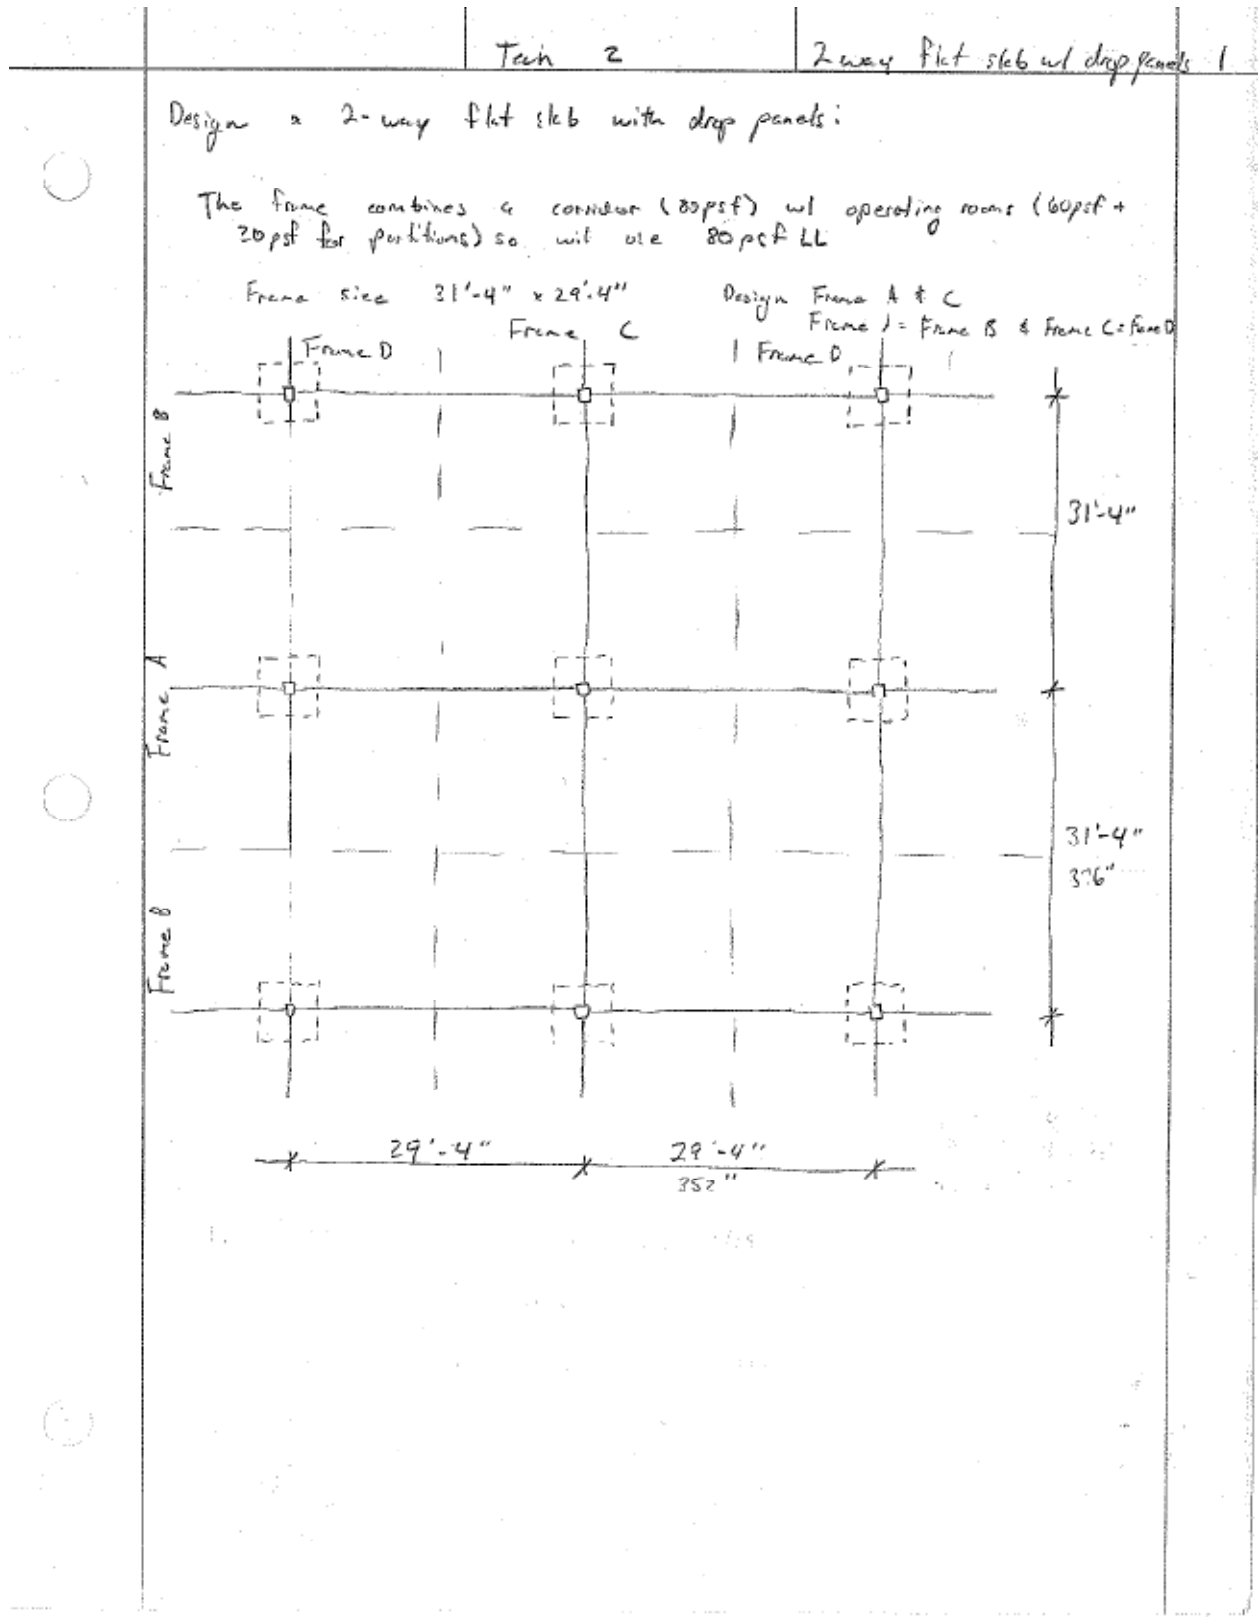 Tech 2
2 way flat slab w/ drop panels 1
Design a 2-way flat slab with drop panels:
The frame combines a corridor (80psf) w/ operating rooms (60psf +
20psf for partitions) so will use 80psf LL
Frame size 31'-4" x 29'-4"
Design Frame A & C
Frame A = Frame B & Frame C = Frame D
Frame D
Frame C
Frame D
Frame B
31'-4"
Frame A
31'-4"
376"
Frame B
29'-4"
29'-4"
352"